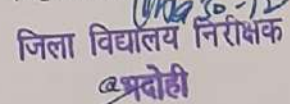 जिला विद्यालय निरीक्षक
भदोही